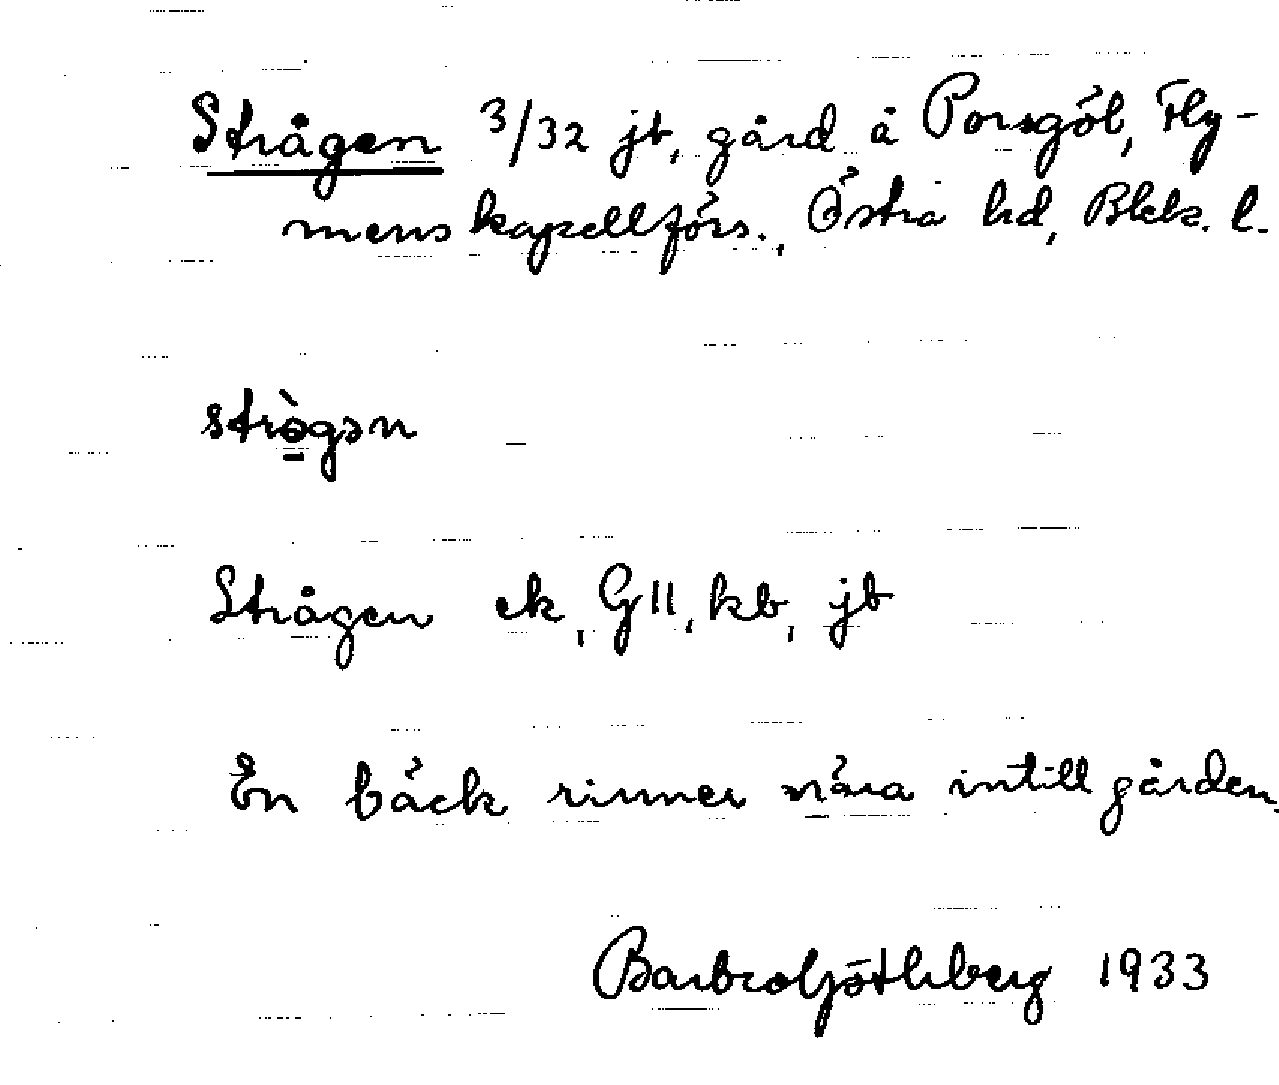 Strågen 3/32 jb, gård å Porsgöl, Fly-
mens kapellförs., Östra hd, Blek. l.
strògən
Strågen ek, GII, kb, jb
En bäck rinner nära intill gården.
Barbro Götlberg 1933